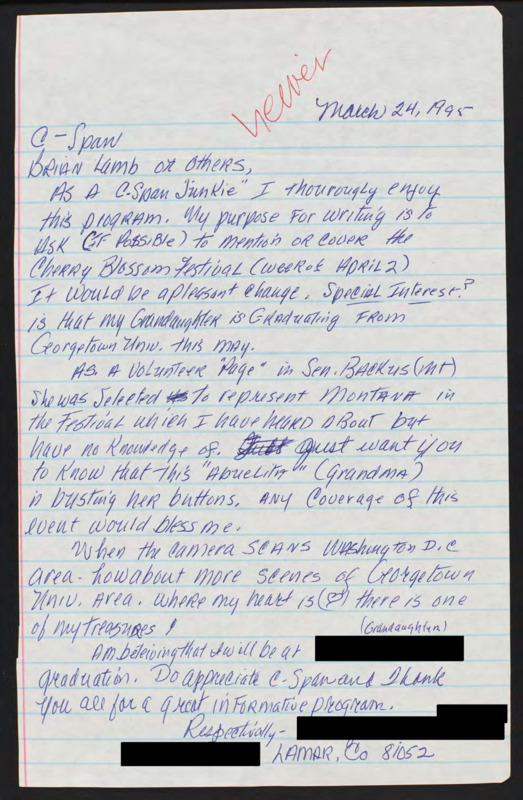 Newer
March 24, 1995
C-Span
BRIAN Lamb or others,
As A C-Span Junkie" I thourougly enjoy
this program. My purpose for writing is to
ask (IF Possible) to mention or cover the
Cherry Blossom Festival (week of April 2)
It would be a pleasant change. Special Interest?
is that my Grandaughter is Graduating From
Georgetown Univ. this May.
As A Volunteer "Page" in Sen. Backus (mt)
she was selected to represent Montana in
the Festival which I have heard about but
have no knowledge of. Just want you
to know that this "Abuelita" (Grandma)
is busting her buttons. Any coverage of this
event would bless me.
When the camera scans Washington D.C
area - how about more scenes of Georgetown
Univ. Area. Where my heart is (♡) there is one
of my treasures!
(Grandaughter)
Am beleiving that I will be at
graduation. Do appreciate C-Span and Thank
you all for a great informative program.
Respectfully -
LAMAR, Co 81052